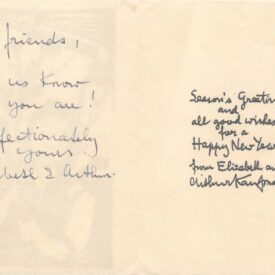 friends,
us know
you are!
fectionately
yours
abeth & Arthur.
Season's Greetin
and
all good wishes
for a
Happy New Year
from Elizabeth an
Arthur Kaufma